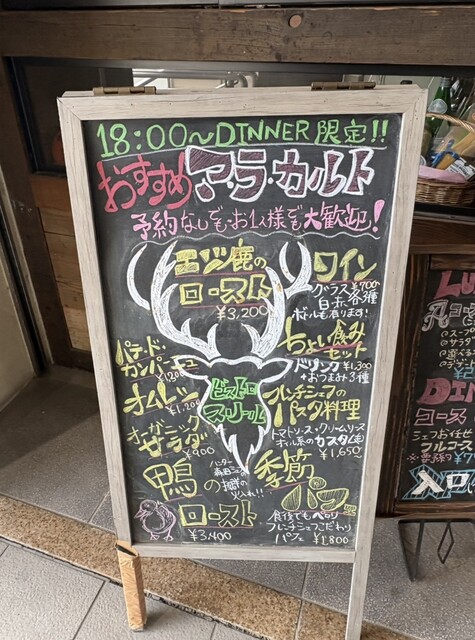 18:00～DINNER 限定!!
おすすめ ア・ラ・カルト
予約なしでもお1人様でも大歓迎!
エゾ鹿の
ロースト
¥3,200
ワイン
グラス¥700
白・赤 各3種
ボトルも有ります!
ちょい飲み
セット
ドリンク ¥1,300
+おつまみ3種
パテ・ド・
カンパーニュ
¥1,200
オムレツ
¥1,200
オーガニック
サラダ
¥900
ビストロ
スリール
フレンチシェフの
パスタ料理
トマトソース・クリームソース
オイル系のカスタム(可)
¥1,650
ハンター
鴨の
火入れ!!
ロースト
¥3,400
季節
パフェ
食後でもペロリ
フレンチシェフこだわり
パフェ ¥1,800
コース
シェフお任せ
フルコース